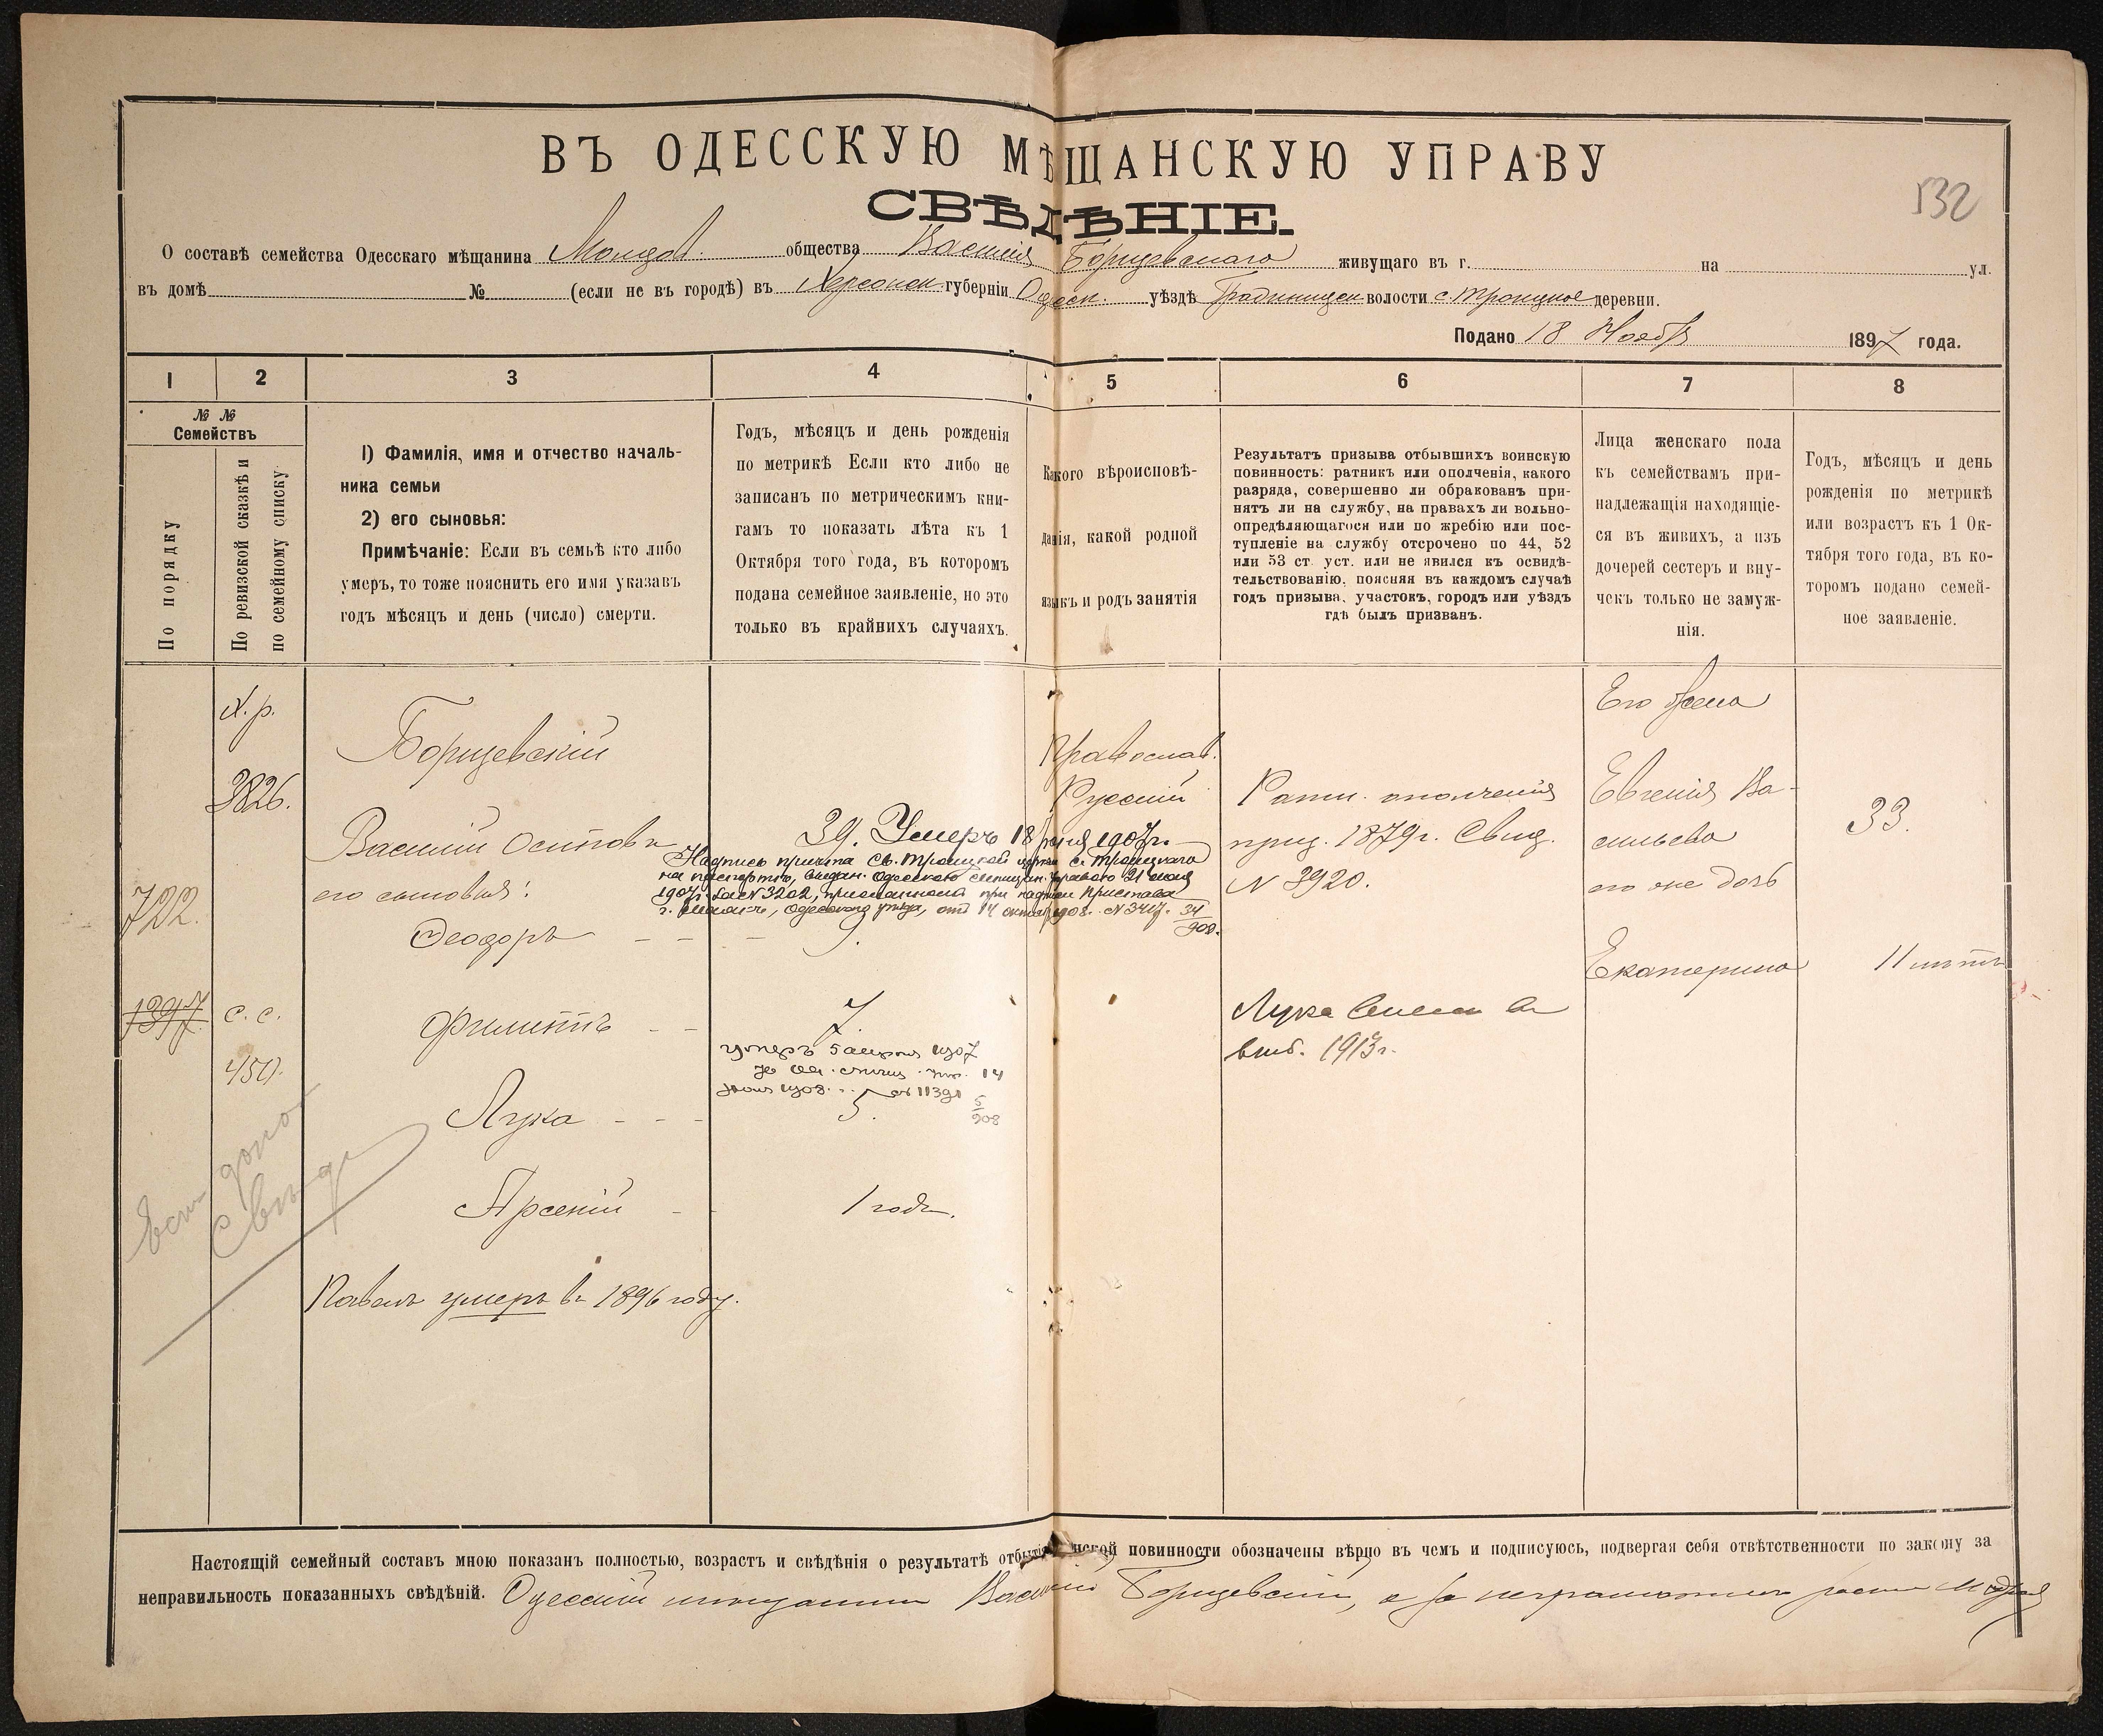 ВЪ ОДЕССКУЮ МѢЩАНСКУЮ УПРАВУ
532
СВѢДѢНІЕ.
О составѣ семейства Одесскаго мѣщанина общества Василія Борщевскаго живущаго въ г. на ул.
въ домѣ № (если не въ городѣ) въ Херсонск. губерніи Одесск. уѣздѣ Градиницкой волости с. Троицкое деревни.
Подано 18 Ноября 1897 года.
1 2 3 4 5 6 7 8
№ №
Семействъ
По порядку
По ревизской сказкѣ и
по семейному списку
1) Фамилія, имя и отчество началь-
ника семьи
2) его сыновья:
Примѣчаніе: Если въ семьѣ кто либо
умеръ, то тоже пояснить его имя указавъ
годъ мѣсяцъ и день (число) смерти.
Годъ, мѣсяцъ и день рожденія
по метрикѣ Если кто либо не
записанъ по метрическимъ кни-
гамъ то показать лѣта къ 1
Октября того года, въ которомъ
подана семейное заявленіе, но это
только въ крайнихъ случаяхъ.
Какого вѣроисповѣ-
данія, какой родной
языкъ и родъ занятія
Результатъ призыва отбывшихъ воинскую
повинность: ратникъ или ополченія, какого
разряда, совершенно ли обракованъ при-
нятъ ли на службу, на правахъ ли вольно-
опредѣляющагося или по жребію или пос-
тупленіе на службу отсрочено по 44, 52
или 53 ст. уст. или не явился къ освидѣ-
тельствованію, поясняя въ каждомъ случаѣ
годъ призыва, участокъ, городъ или уѣздъ
гдѣ былъ призванъ.
Лица женскаго пола
къ семействамъ при-
надлежащія находящіе-
ся въ живихъ, а изъ
дочерей сестеръ и вну-
чекъ только не замуж-
нія.
Годъ, мѣсяцъ и день
рожденія по метрикѣ
или возрастъ къ 1 Ок-
тября того года, въ ко-
торомъ подано семей-
ное заявленіе.
Его жена
Борщевскій
Православ.
3826.
Русскій
Ратн. ополченія
Евгенія Ва-
33.
Василій Осиповъ
39. Умеръ 18 1907г.
приз. 1879г. Свид.
сильева
Надпись причта Св. Троицкой церкви с. Троицкаго
на паспортѣ, выдан. Одесскою мѣщан. управою 21
1907г. за № 3202, присланномъ при надписи Пристава
Одесскаго уѣзда, отъ 14 1908г. № 3417. 34/908.
N 3920.
его же дочь
его сыновья:
722.
Ѳеодоръ - - - 9.
Екатерина
11 лѣтъ
1397
с. с.
Филиппъ - - 7.
Лука внесен въ
450.
умеръ 5 1907
14
1908 № 11391 5/908
1913г.
Лука - - - 5.
Арсеній - - 1 годъ.
Павелъ умеръ въ 1896 году.
Настоящій семейный составъ мною показанъ полностью, возрастъ и свѣдѣнія о результатѣ отбытія повинности обозначены вѣрно въ чемъ и подписуюсь, подвергая себя отвѣтственности по закону за
неправильность показанныхъ свѣдѣній. Одесскій мѣщанинъ Василій Борщевскій, а за неграмотнаго